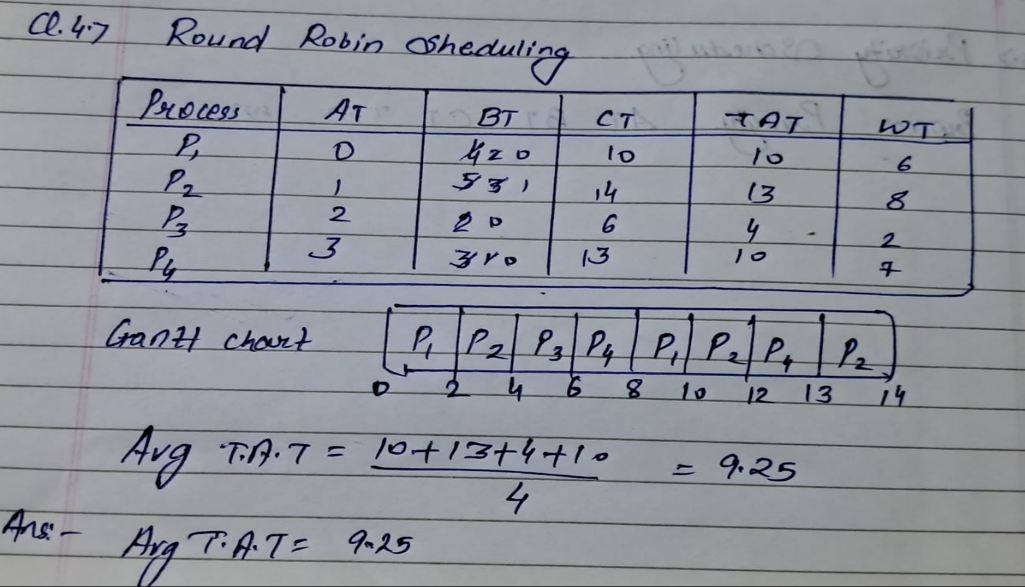 Q.4.7 Round Robin Sheduling
Process AT BT CT TAT WT
P1 0 4 2 0 10 10 6
P2 1 5 3 1 14 13 8
P3 2 2 0 6 4 2
P4 3 3 1 0 13 10 7
Gantt chart P1 P2 P3 P4 P1 P2 P4 P2
0 2 4 6 8 10 12 13 14
Avg T.A.T = 10+13+4+10 = 9.25
4
Ans:- Avg T.A.T = 9.25